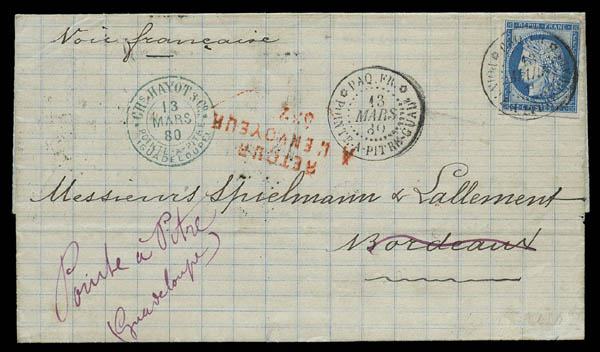 Voie française
REPUB. FRANC.
CHS. HAYOT & Cie
13
MARS
80
POINTE-A-PITRE
(GUADELOUPE)
RETOUR
A L'ENVOYEUR
632
PAQ. FR.
13
MARS
80
POINTE-A-PITRE-GUAD
Messieurs Spielmann & Lallement
Bordeaux
Pointe à Pitre
Guadeloupe